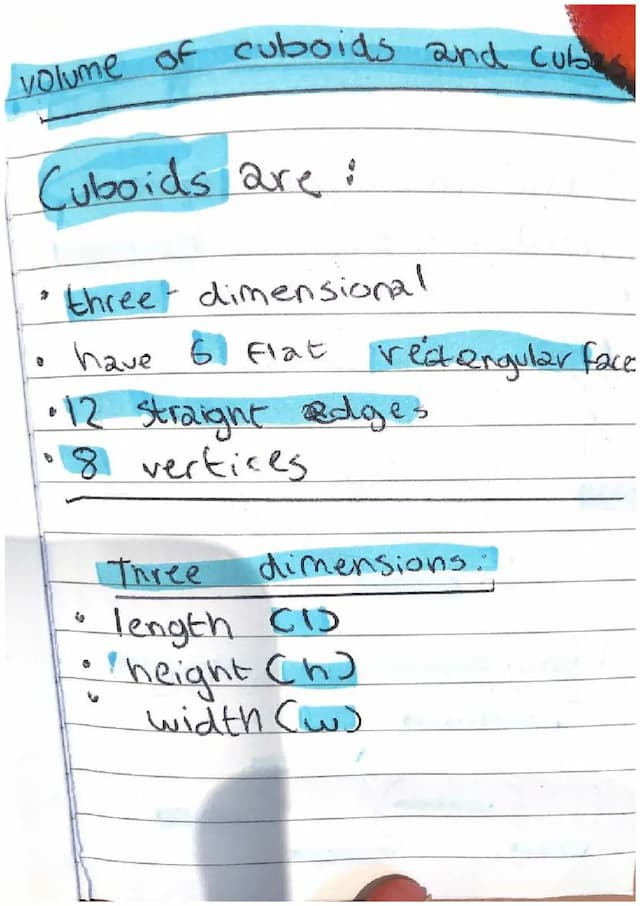 volume of cuboids and cubes
Cuboids are :
• three - dimensional
• have 6 flat rectengular face
• 12 straight edges
• 8 vertices
Three dimensions:
• length (l)
• height (h)
• width (w)